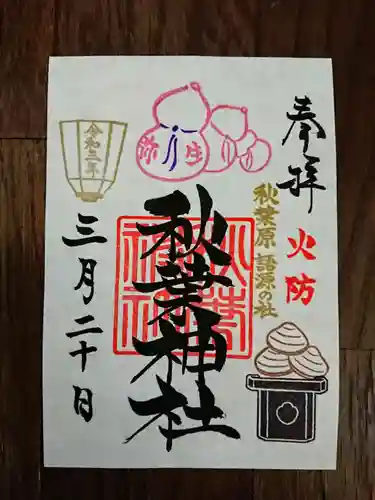 奉拝
火防
秋葉原 語源の社
秋葉神社
弥生
令和三年
三月二十日